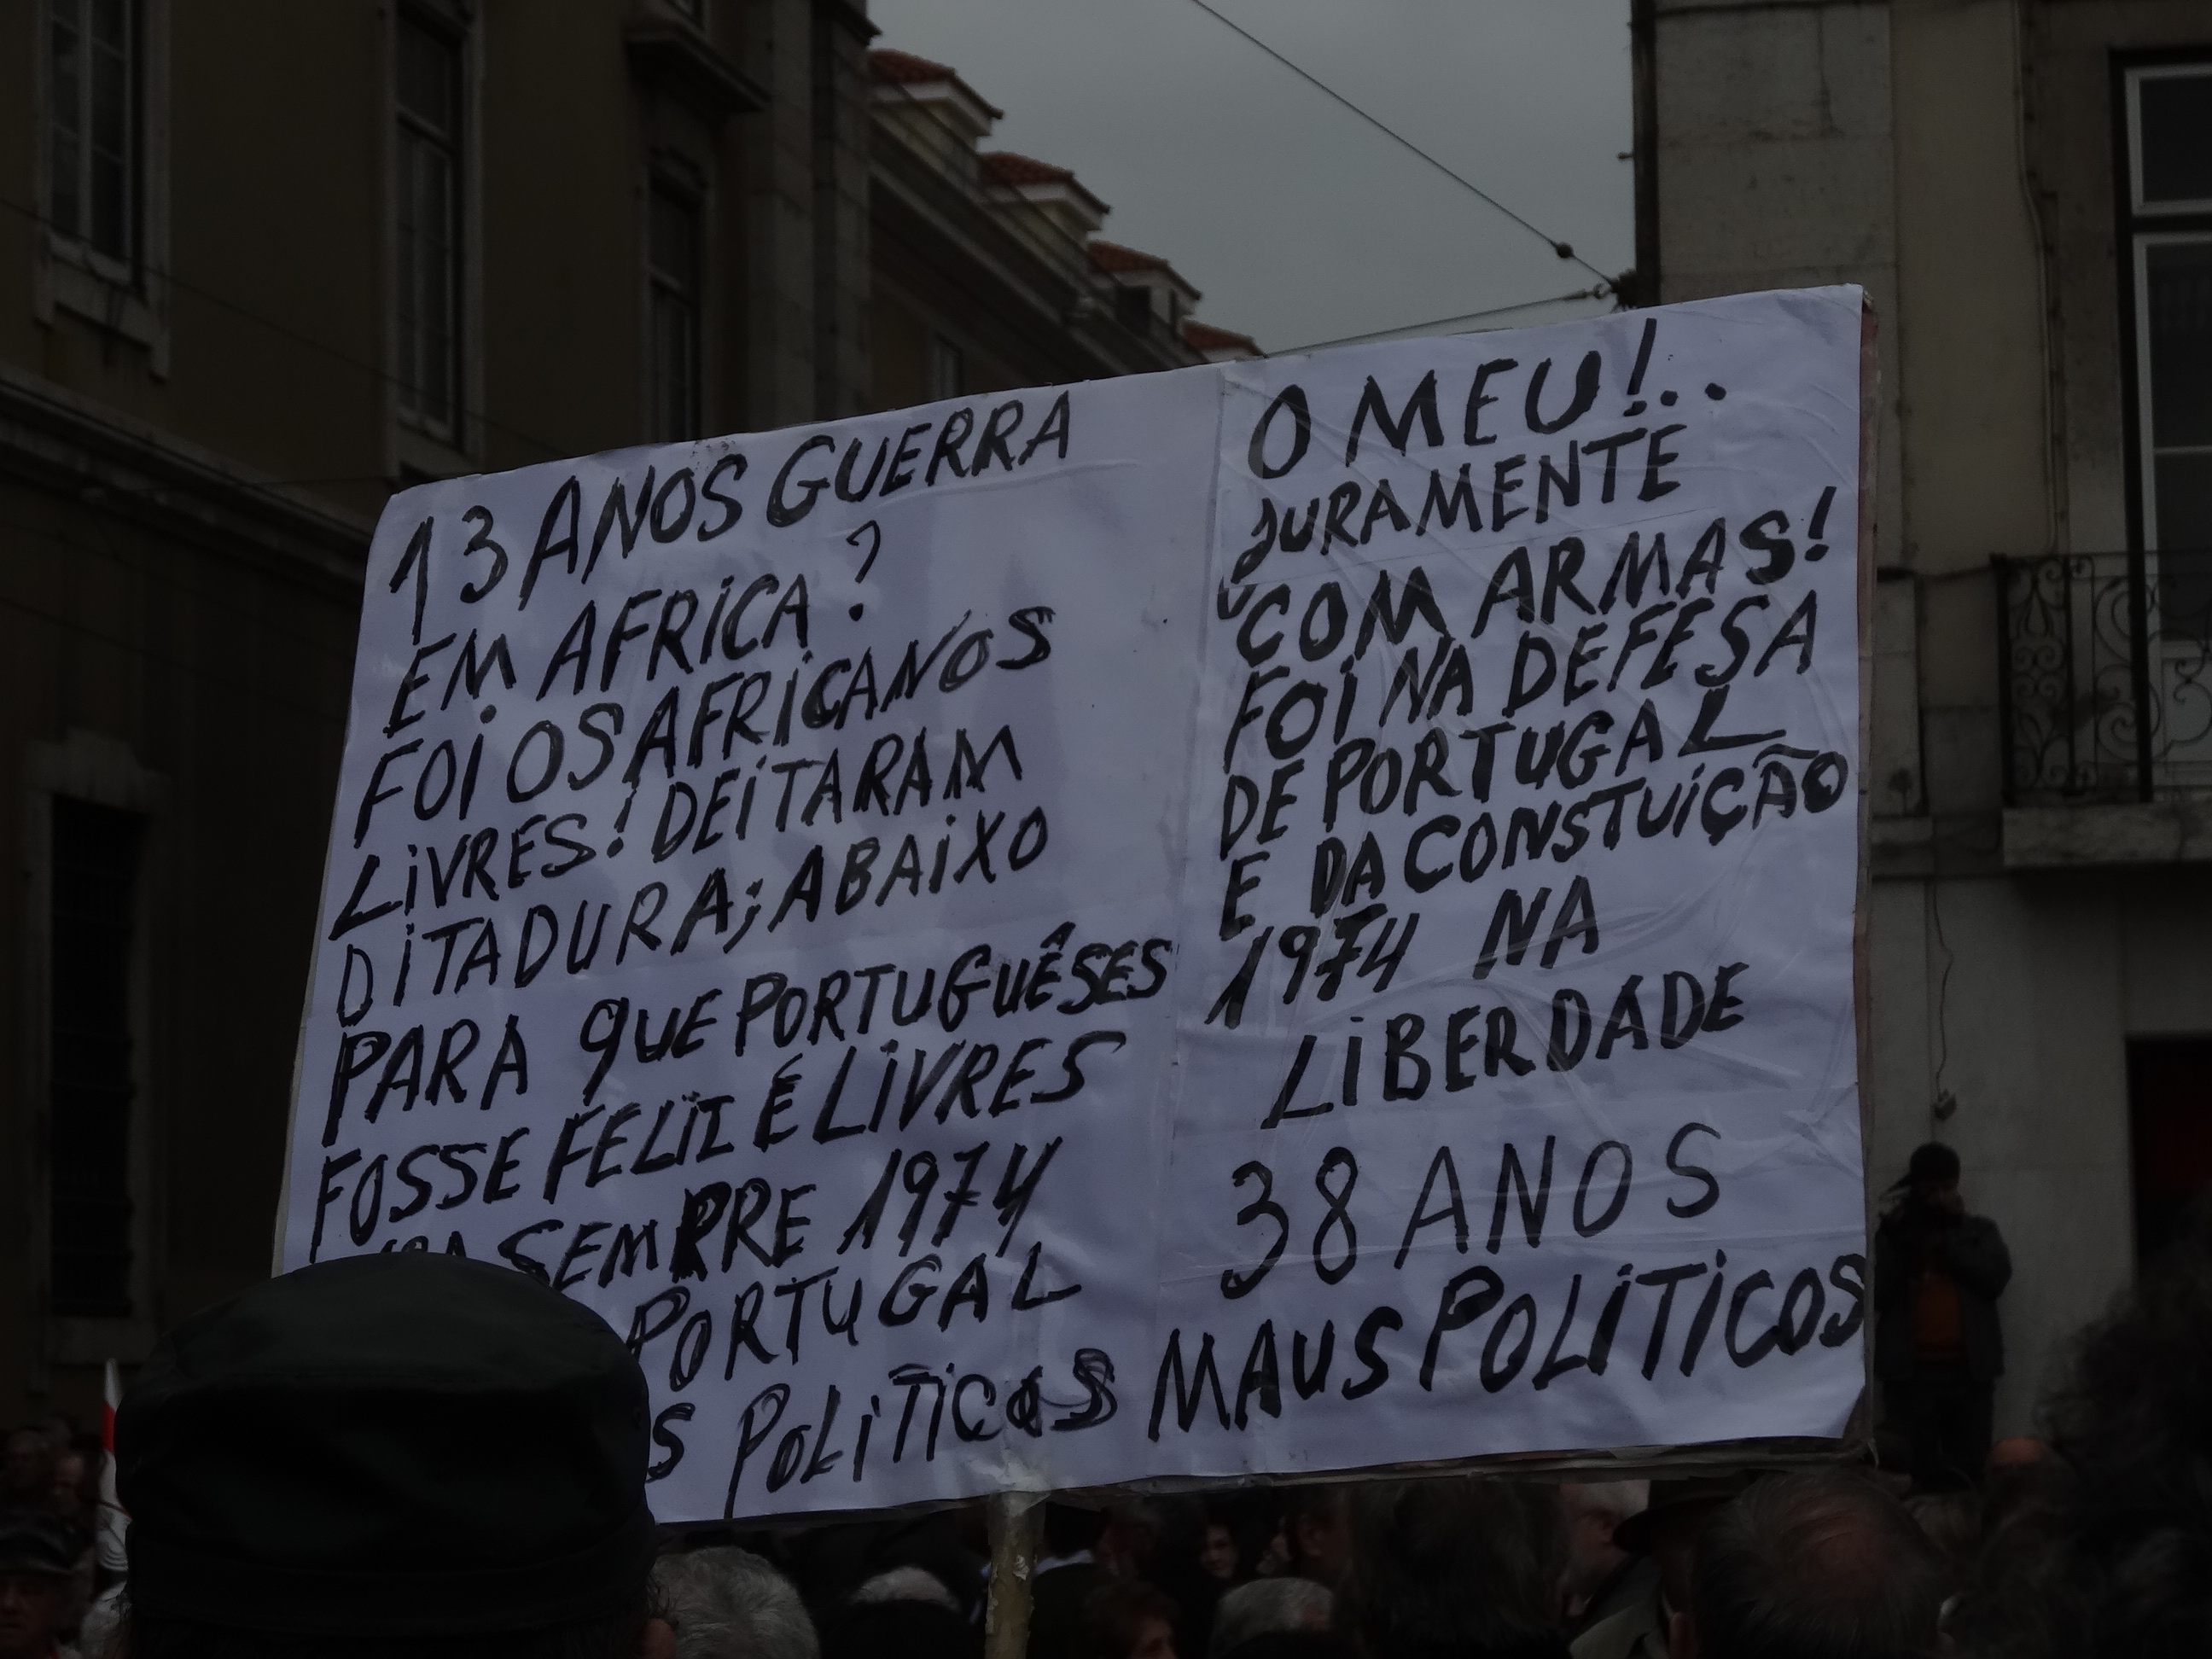 13 ANOS GUERRA
EM AFRICA?
FOI OS AFRICANOS
LIVRES! DEITARAM
DITADURA; ABAIXO
PARA QUE PORTUGUÊSES
FOSSE FELIZ É LIVRES
SEMPRE 1974
PORTUGAL
POLITICOS
O MEU!..
JURAMENTE
COM ARMAS!
FOI NA DEFESA
DE PORTUGAL
E DA CONSTUIÇÃO
1974 NA
LIBERDADE
38 ANOS
MAUS POLITICOS